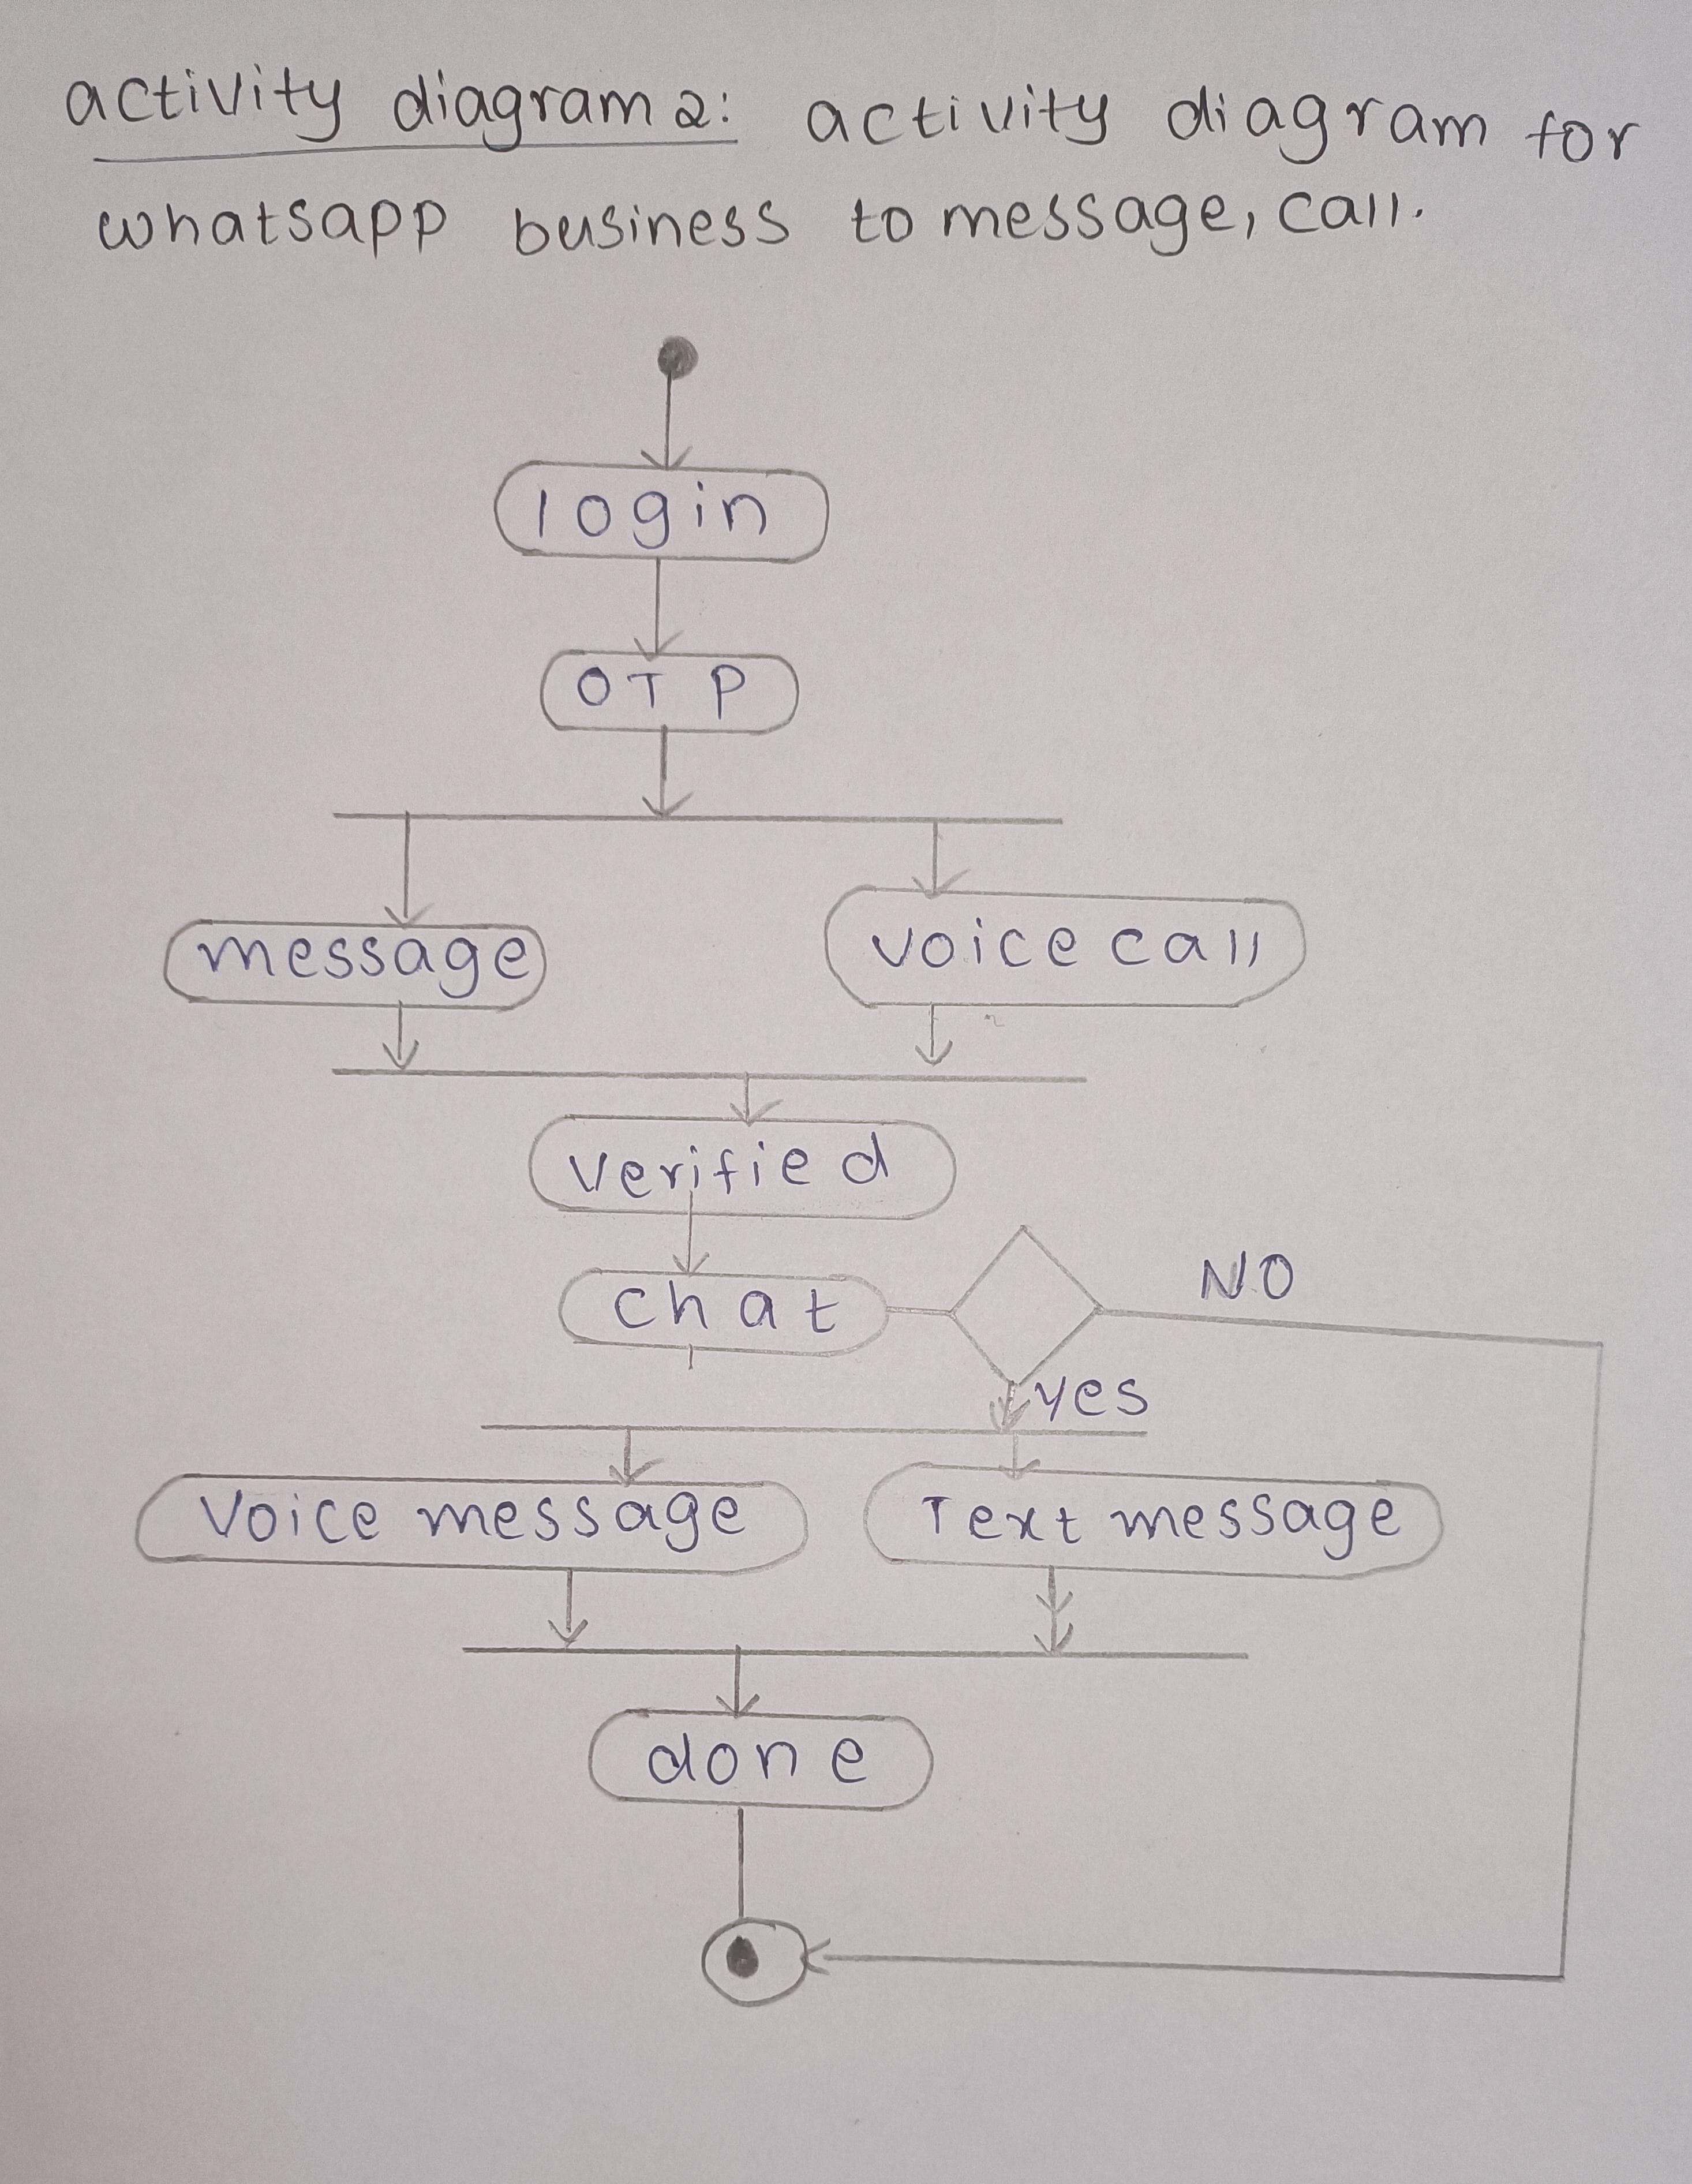 activity diagram 2: activity diagram for
whatsapp business to message, call.
login
OTP
message
voice call
verified
chat
NO
yes
Voice message
Text message
done